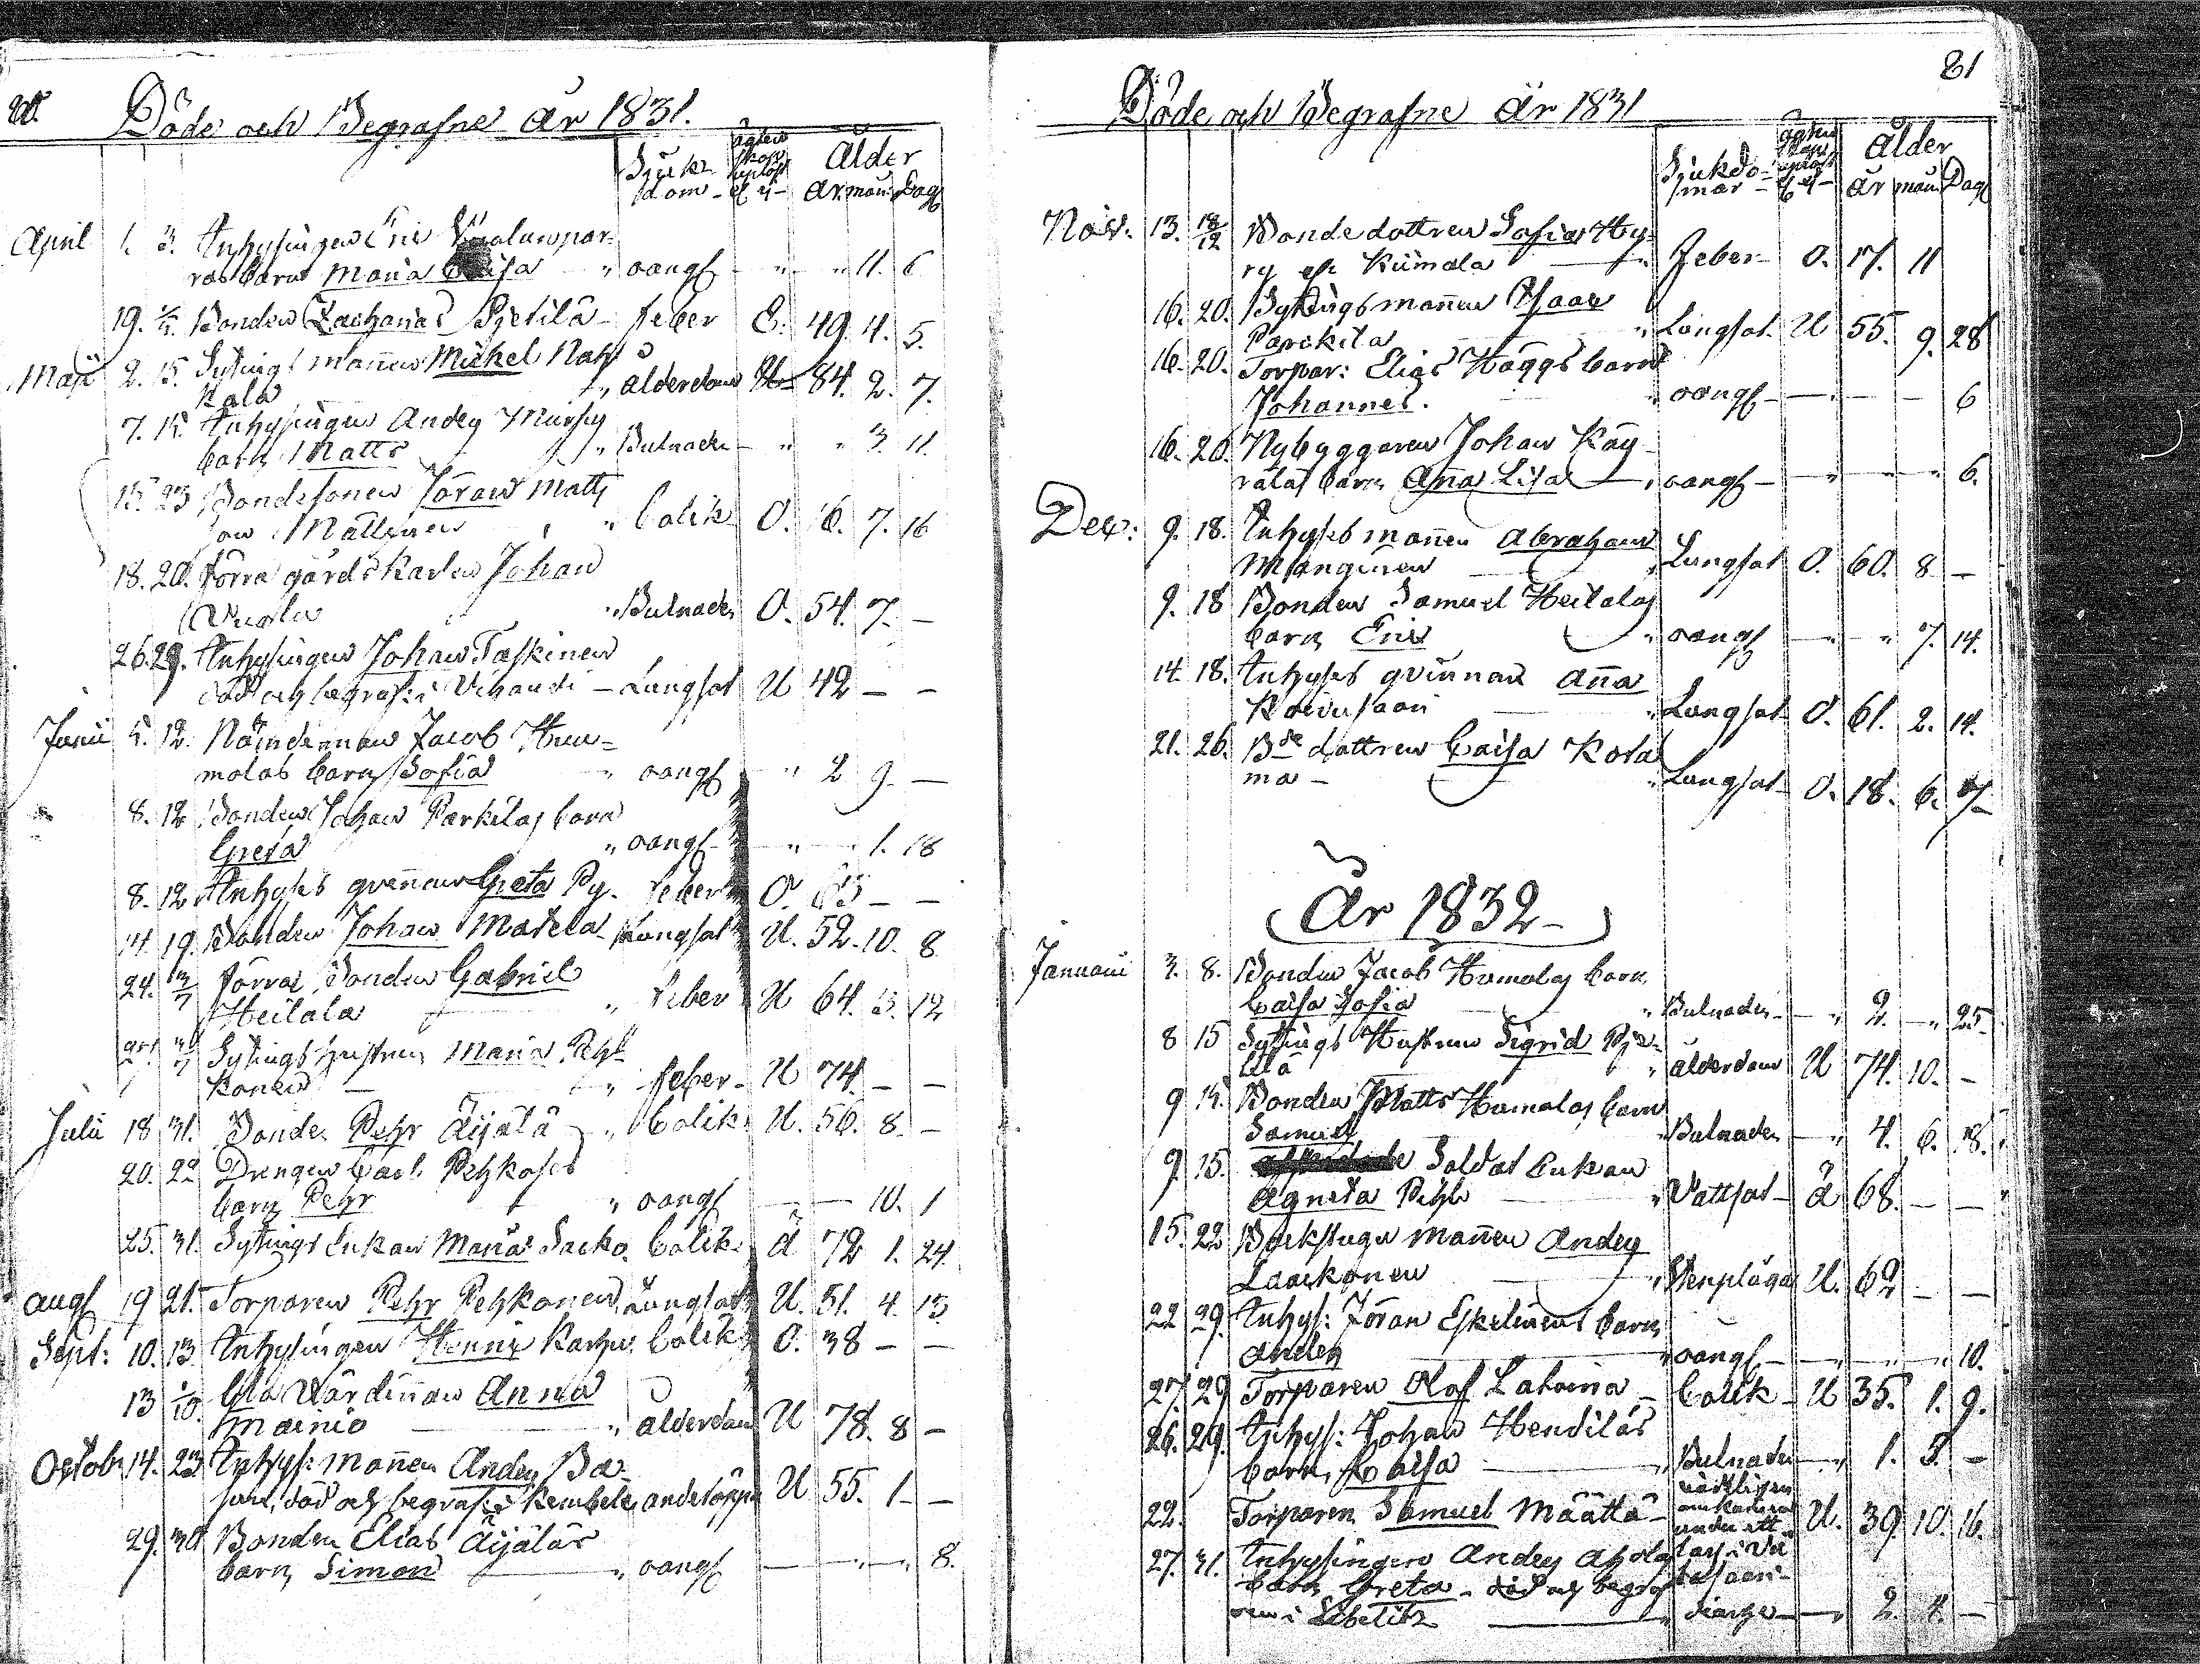 80.
Döde och Begrafne år 1831.
Sjuk-
dom
Ålder
år mån: Dag
April 1. 3. Inhysingen Eric
ras barn Maria Caisa " oangf - " " 11. 6
19. Bonden Zacharias Pjetilä feber E. 49. 4. 5.
Maji 2. 15. Sytings mannen Mickel
ålderdom 84. 2. 7.
7. 15. Inhysingen Anders
barn Matts " Bulnader - " " 3. 11.
15. 23 Bondesonen Jöran Matts
son " Colik O. 16. 7. 16
18. 20. Förra gårdskarlen Johan
" Bulnader O. 54. 7. -
26. 29. Inhysingen Johan Taskinen
död och begraf: i Vihandi - Lungsot U 42 - -
Junii 5. 12. Nämndeman Jacob Hu-
molas barn Sofia " oangf - " 2 9 -
8. 12 Bonden Johan Parkilas barn
Greta " oangf - " 1. 18
8. 12 Inhyses qvinnan Greta Py. feber O. 65 - -
14. 19. Bonden Johan Matela Lungsot U. 52. 10. 8
24. 3/7 Förra Bonden Gabriel
Heilala " feber U 64. 3. 12
Sytings hustrun Maria Pehk
konen " feber - U 74. - -
Julii 18 31. Bonden Pehr Äijälä " Colik U. 56. 8. -
20. 22 Drengen Carl Pehkoses
barn Pehr " oangf - - 10. 1
25. 31. Sytings Enkan Maria Sarko. Colik ä 72 1. 24.
Augs 19 21. Torparen Pehr Pehkonen, Lungsot U. 51. 4. 13
Sept: 10. 13. Inhysingen Henric Karhu. Colik O. 38 - -
13 1/10. Gla Värdinnan Anna
Mainio " ålderdom U 78. 8 -
Octobr 14. 23 Inhys: mannen Anders Ba-
död och begraf: i Kembele, U 55. 1 -
29. 30 Bonden Elias Äijäläs
barn Simon " oangf - " " 8.
81
Döde och Begrafne År 1831
Sjukdo-
mar
Ålder
år mån Dag
Nov. 13. 18/12 Bonde dottren Sofia Hy-
ry ifr. Kiimala Feber - O. 17. 11
16. 20. Sytningsmannen Isaac
Parckila " Lungsot. U 55. 9. 28
16. 20. Torpar: Elias Häggs barn
Johannes. " oangf - - - 6
16. 20. Nybyggaren Johan Käy-
räläs barn Anna Lisa " oangf - " " " 6.
Dec: 9. 18. Inhyses mannen Abraham
Manginen " Lungsot O. 60. 8 -
9. 18 Bonden Samuel Heilalas
barn Eric " oangf - " " 7. 14.
14. 18. Inhyses qvinnan Anna
Koivusaari " Lungsot O. 61. 2. 14.
21. 26. Bde dottren Caisa Kota
ma - " Lungsot O. 18. 6. 7-
År 1832-
Januarii 3. 8. Bonden Jacob Humalas barn
Caisa Sofia " Bulnader - " 2. - 25
8 15 Sytings Hustrun Sigrid Pje-
tilä " ålderdom U 74. 10. -
9 15. Bonden Matts Humalas barn
Samuel " Bulnader - " 4. 6. 18.
9. 15. Soldat Enkan
Agneta Pehl " Vattsot - ä 68. - -
15. 22 Backstugu mannen Anders
Laackonen " Stenplåga U. 62 - -
22 29. Inhys: Jöran Eskelinens barn
Anders " oangf - " " 10.
27. 29 Torparen Olof Lakoma - Colik - U 35. 1. 9.
26. 29. Inhys: Johan Hendiläs
barn, Caisa " Bulnader - " 1. 5. -
22. Torparen Samuel Määttä - vådligen
omkommen
under ett
lass i
U. 39. 10. 16.
27. 31. Inhysingen Anders Ahola
barn Greta - död och begraf
ven i Libelitz " - " 2. 4. -